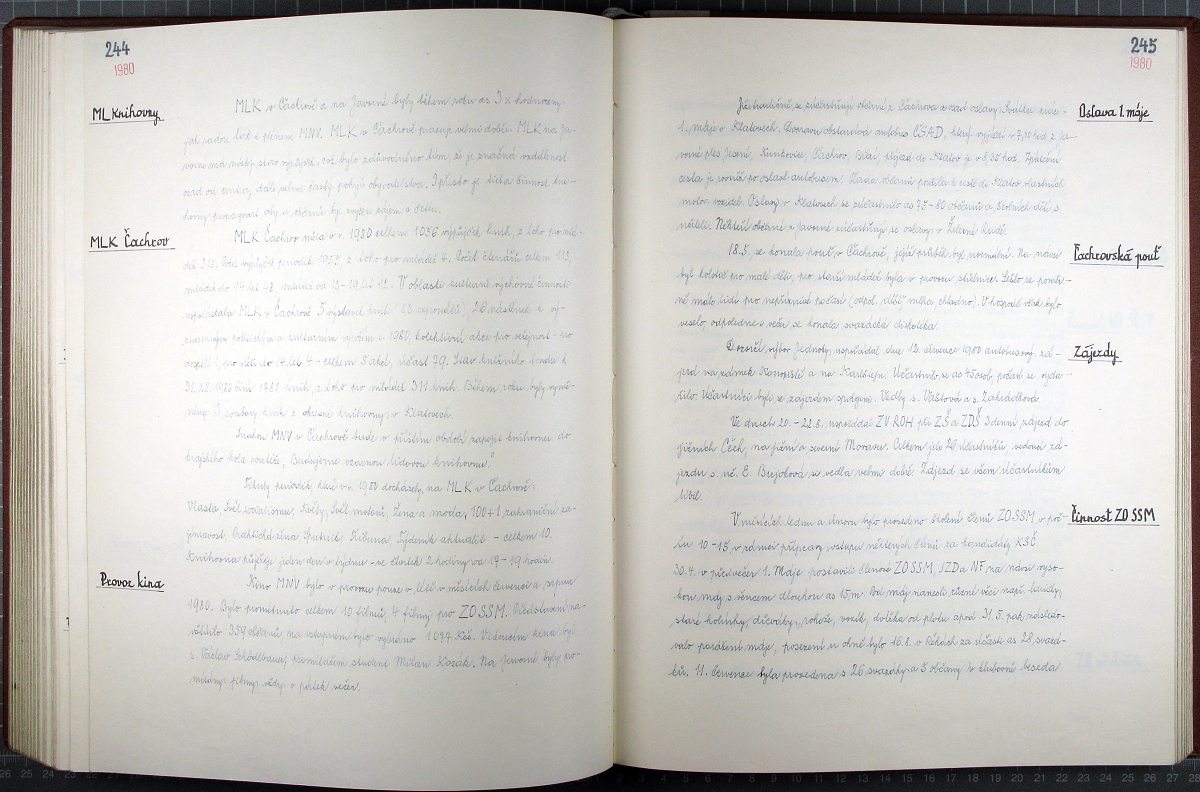 244
1980
ML knihovny
MLK v Čachrově a na Javorné byly během roku as 3 x hodnoceny
jak radou tak i plénem MNV. MLK v Čachrově pracuje velmi dobře. MLK na Ja-
vorné má nízký stav výpůjček, což bylo zdůvodněno tím, že je značná vzdálenost
osad od centra, dále velmi častý pohyb obyvatelstva. I přesto je třeba činnost kni-
hovny propagovat aby u občanů byl zvýšen zájem o četbu.
MLK Čachrov
MLK Čachrov měla v r. 1980 celkem 1056 výpůjček knih, z toho pro mlá-
dež 212. Počet výpůjček periodik 1952, z toho pro mládež 4. Počet čtenářů celkem 113,
mládež do 14 let 48, mládež od 15-19 let 12. V oblasti kulturně výchovné činnosti
uspořádala MLK v Čachrově 5 výstavek knih (83 exponátů), 26 nástěnek k vý-
znamným politickým a kulturním výročím r. 1980, kolektivní akce pro veřejnost - pro
dospělé 1, pro děti do 14 let 4 - celkem 5 akcí, účast 79. Stav knižního fondu k
31.12. 1980 činí 1981 knih, z toho pro mládež 311 knih. Během roku byly vymě-
něny soubory knih z okresní knihovny v Klatovech.
Snahou MNV v Čachrově bude v příštím období zapojit knihovnu do
krajského kola soutěže „Budujeme vzornou lidovou knihovnu."
Tituly periodik, které v r. 1980 docházely na MLK v Čachrově:
Vlasta, Svět socialismu, Květy, Svět motorů, Žena a móda, 100+1 zahraniční za-
jímavost, Praktická žena, Sputnik, Tribuna, Týdeník aktualit - celkem 10.
Knihovna půjčuje jeden den v týdnu - ve čtvrtek 2 hodiny od 17 - 19 hodin.
Provoz kina
Kino MNV bylo v provozu pouze v létě v měsících červenci a srpnu
1980. Bylo promítnuto celkem 10 filmů, 4 filmy pro ZO SSM. Představení na-
vštívilo 359 občanů, na vstupném bylo vybráno 1 077 Kčs. Vedoucím kina byl
s. Václav Schödlbauer, promítačem student Milan Kosák. Na Javorné byly pro-
mítány filmy vždy v pátek večer.
245
1980
Oslava 1. máje
Již tradičně se zúčastňují občané z Čachrova a osad oslavy Svátku práce -
1. máje v Klatovech. Dopravu obstarával autobus ČSAD, který vyjížděl v 7,10 hod. z Ja-
vorné přes Jesení, Kunkovice, Čachrov, Běšiny, příjezd do Klatov je v 8,35 hod. Zpáteční
cesta je rovněž po oslavě autobusem. Řada občanů použila k cestě do Klatov vlastních
motor. vozidel. Oslavy v Klatovech se zúčastnilo as 75-80 občanů a školních dětí s
učiteli. Někteří občané z Javorné zúčastňují se oslavy v Železné Rudě.
Čachrovská pouť
18.5. se konala pouť v Čachrově, jejíž průběh byl normální. Na návsi
byl kolotoč pro malé děti, pro starší mládež byla v provozu střelnice. Sešlo se poměr-
ně málo lidí pro nepříznivé počasí (odpol. déšť, mlha, chladno). V hospodě však bylo
veselo, odpoledne a večer se konala svazácká diskotéka.
Zájezdy
Dozorčí výbor Jednoty uspořádal dne 12. července 1980 autobusový zá-
jezd na zámek Konopiště a na Karlštejn. Účastnilo se as 45 osob, počasí se vyda-
řilo. Účastníci byli se zájezdem spokojeni. Vedly s. Vaštová a s. Zahrádková.
Ve dnech 20. - 22.8. uspořádal ZV ROH při ZŠ a ZDŠ 3 denní zájezd do
jižních Čech, na jižní a severní Moravu. Celkem jelo 26 účastníků, vedoucí zá-
jezdu s. uč. E. Brejchová se vedla velmi dobře. Zájezd se všem účastníkům
líbil.
Činnost ZO SSM
V měsících lednu a únoru bylo provedeno školení členů ZO SSM v po-
čtu 10-15, v rámci přípravy vstupu některých členů za kandidáty KSČ
30.4. v předvečer 1. Máje postavili členové ZO SSM, JZD a NF na návsi vyso-
kou máj s věncem dlouhou as 15 m. Pod máj nanosili různé věci např. lavičky,
staré holínky, dřeváky, rohože, vozík, dvířka od plotu apod. 31.5. pak následo-
valo poražení máje, posezení u ohně bylo 16.8. v Rohách za účasti as 28 svazá-
ků. 11. července byla provedena s 26 svazáky a 5 občany v klubovní beseda